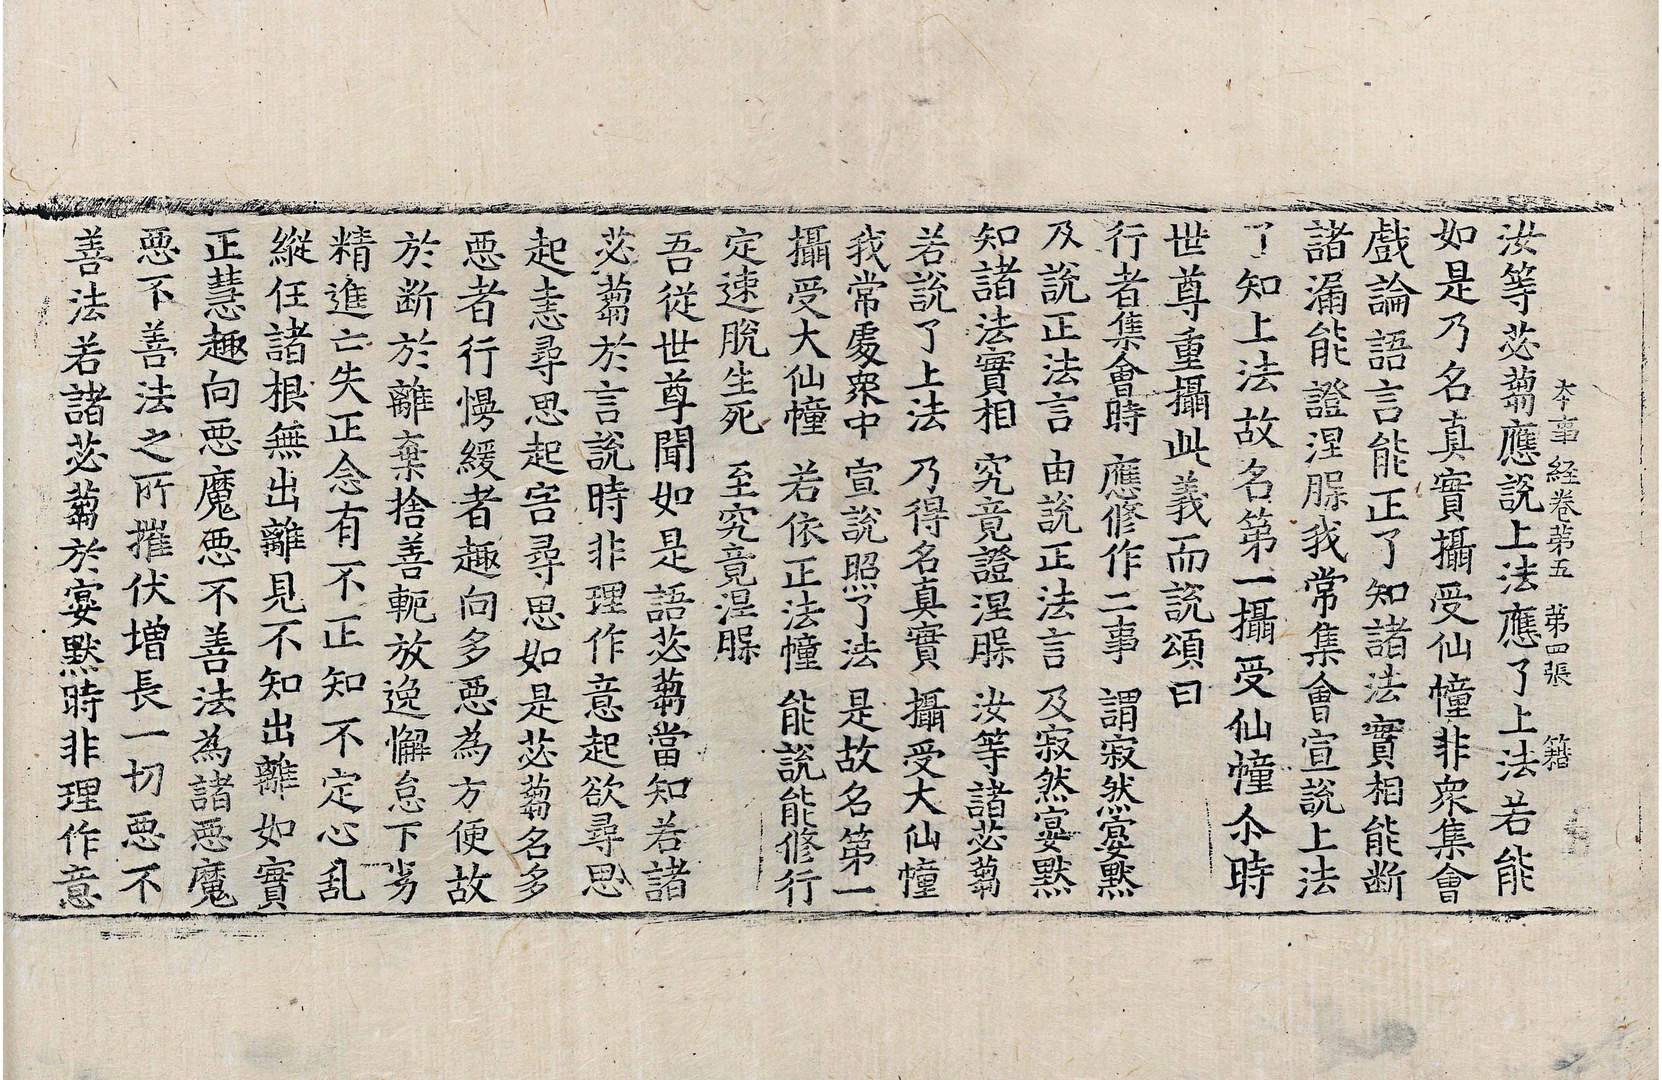 本事經卷第五 第四張 籍
汝等苾蒭應說上法應了上法若能
如是乃名真實攝受仙幢非衆集會
戲論語言能正了知諸法實相能断
諸漏能證涅膟我常集會宣說上法
了知上法故名第一攝受仙幢尒時
世尊重攝此義而說頌曰
行者集會時 應修作二事 謂寂然宴默
及説正法言 由說正法言 及寂然宴默
知諸法實相 究竟證涅膟 汝等諸苾蒭
若說了上法 乃得名真實 攝受大仙幢
我常處衆中 宣說照了法 是故名第一
攝受大仙幢 若依正法幢 能說能修行
定速脫生死 至究竟涅膟
吾從世尊聞如是語苾蒭當知若諸
苾蒭於言說時非理作意起欲尋思
起恚尋思起害尋思如是苾蒭名多
惡者行慢緩者趣向多惡為方便故
於断於離棄捨善軛放逸懈怠下劣
精進亡失正念有不正知不定心乱
縱任諸根無出離見不知出離如實
正慧趣向惡魔惡不善法為諸惡魔
惡不善法之所摧伏增長一切惡不
善法若諸苾蒭於宴默時非理作意